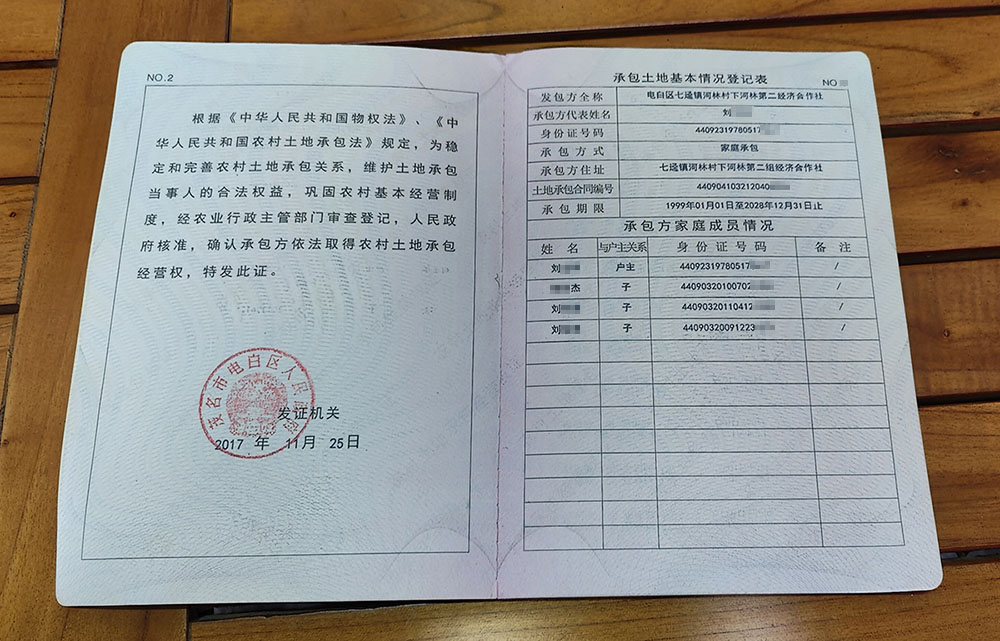 NO.2
根据《中华人民共和国物权法》、《中
华人民共和国农村土地承包法》规定，为稳
定和完善农村土地承包关系，维护土地承包
当事人的合法权益，巩固农村基本经营制
度，经农业行政主管部门审查登记，人民政
府核准，确认承包方依法取得农村土地承包
经营权，特发此证。
茂名市电白区人民
发证机关
2017 年 11月 25日
承包土地基本情况登记表
NO
发包方全称 电白区七迳镇河林村下河林第二经济合作社
承包方代表姓名 刘
身份证号码 44092319780517
承包方式 家庭承包
承包方住址 七迳镇河林村下河林第二组经济合作社
土地承包合同编号 440904103212040
承包期限 1999年01月01日至2028年12月31日止
承包方家庭成员情况
姓 名 与户主关系 身份证号码 备 注
刘 户主 44092319780517 /
杰 子 44090320100702 /
刘 子 44090320110412 /
刘 子 44090320091223 /